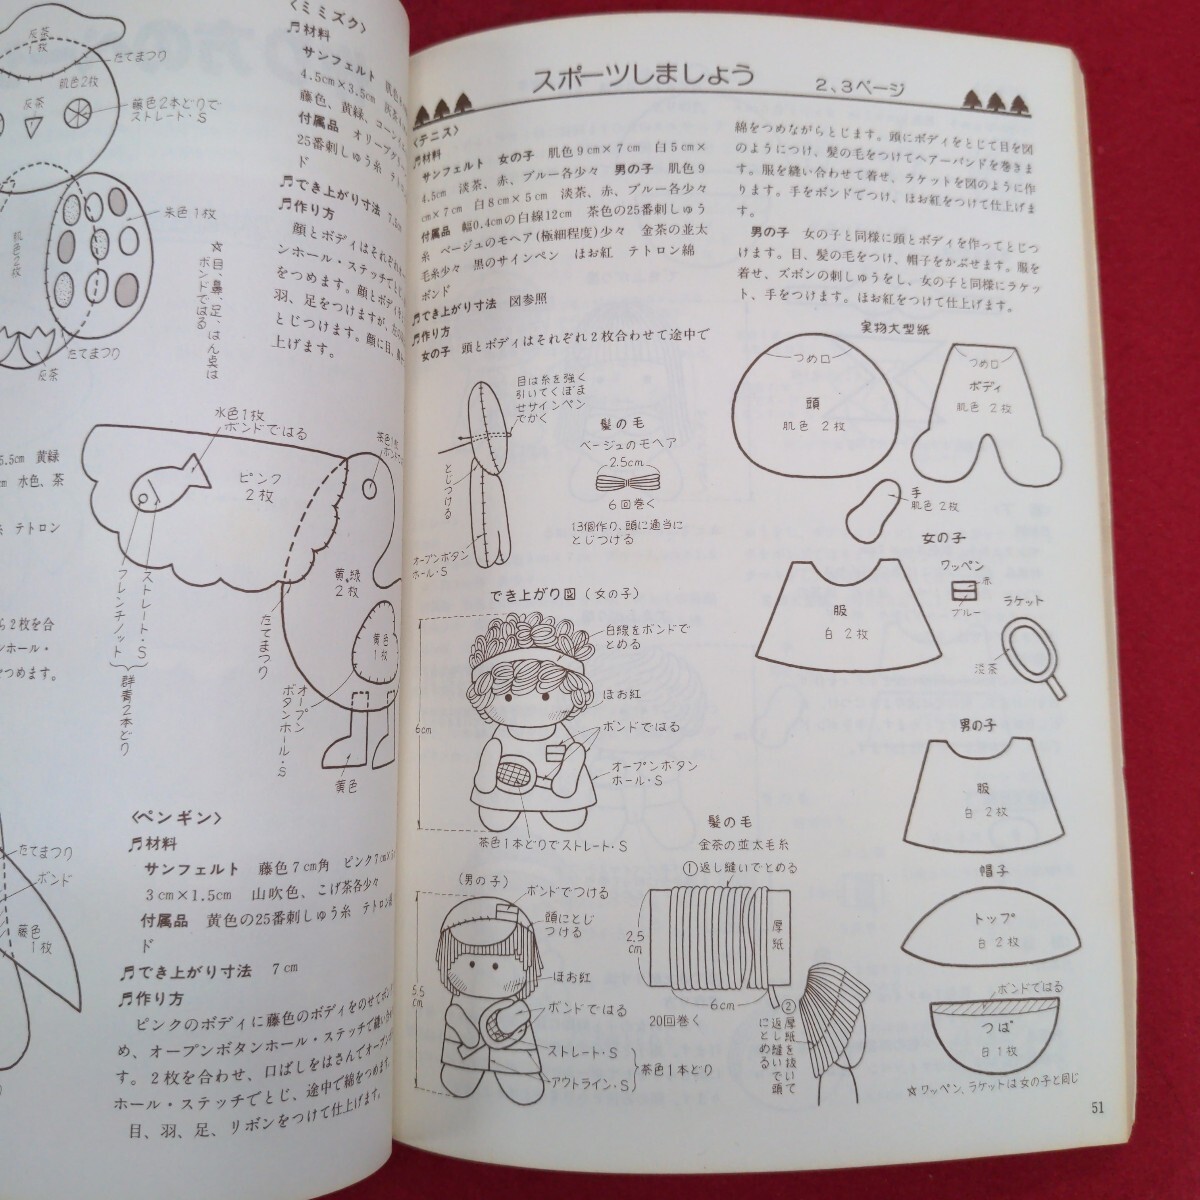 灰茶
1枚
たてまつり
肌色2枚
灰茶
藤色2本どりで
ストレート・S
朱色1枚
肌色2枚
☆目、鼻、足、はん点は
ボンドではる
たてまつり
灰茶
〈ミミズク〉
材料
サンフェルト
4.5cm×3.5cm
藤色、黄緑、コーン
付属品 オリーブ
25番刺しゅう糸
ド
でき上がり寸法
作り方
顔とボディはそれぞれ
ンホール・ステッチでと
をつめます。顔とボディを
羽、足をつけますが、
とじつけます。顔に目、
上げます。
5.5cm 黄緑
cm 水色、茶
糸 テトロン
ら2枚を合
ンホール・
をつめます。
水色1枚
ボンドではる
ピンク
2枚
茶色1枚
黄緑
2枚
黄色
1枚
ストレート・S
フレンチノット
群青2本どり
たてまつり
オープン
ボタンホール・S
黄色
たてまつり
ボンド
藤色
1枚
〈ペンギン〉
材料
サンフェルト 藤色7cm角 ピンク7cm×
3cm×1.5cm 山吹色、こげ茶各少々
付属品 黄色の25番刺しゅう糸 テトロン綿
ド
でき上がり寸法 7cm
作り方
ピンクのボディに藤色のボディをのせてボン
め、オープンボタンホール・ステッチで縫い合わ
す。2枚を合わせ、口ばしをはさんでオープン
ホール・ステッチでとじ、途中で綿をつめます。
目、羽、足、リボンをつけて仕上げます。
スポーツしましょう 2、3ページ
〈テニス〉
材料
サンフェルト 女の子 肌色9cm×7cm 白5cm×
4.5cm 淡茶、赤、ブルー各少々 男の子 肌色9
cm×7cm 白8cm×5cm 淡茶、赤、ブルー各少々
付属品 幅0.4cmの白線12cm 茶色の25番刺しゅう
糸 ベージュのモヘア(極細程度)少々 金茶の並太
毛糸少々 黒のサインペン ほお紅 テトロン綿
ボンド
でき上がり寸法 図参照
作り方
女の子 頭とボディはそれぞれ2枚合わせて途中で
綿をつめながらとじます。頭にボディをとじて目を図
のようにつけ、髪の毛をつけてヘアーバンドを巻きま
す。服を縫い合わせて着せ、ラケットを図のように作
ります。手をボンドでつけ、ほお紅をつけて仕上げま
す。
男の子 女の子と同様に頭とボディを作ってとじつ
けます。目、髪の毛をつけ、帽子をかぶせます。服を
着せ、ズボンの刺しゅうをし、女の子と同様にラケッ
ト、手をつけます。ほお紅をつけて仕上げます。
目は糸を強く
引いてくぼま
せサインペン
でかく
とじつける
オープンボタン
ホール・S
髪の毛
ベージュのモヘア
2.5cm
6回巻く
13個作り、頭に適当に
とじつける
でき上がり図(女の子)
6cm
白線をボンドで
とめる
ほお紅
ボンドではる
オープンボタン
ホール・S
茶色1本どりでストレート・S
(男の子)
5.5
cm
ボンドでつける
頭にとじ
つける
ほお紅
ボンドではる
ストレート・S
アウトライン・S
茶色1本どり
髪の毛
金茶の並太毛糸
①返し縫いでとめる
2.5
cm
厚紙
6cm
20回巻く
②厚紙を抜いて
返し縫いで頭
にとめる
実物大型紙
つめ口
頭
肌色 2枚
つめ口
ボディ
肌色 2枚
手
肌色 2枚
女の子
服
白 2枚
ワッペン
赤
ブルー
ラケット
淡茶
男の子
服
白 2枚
帽子
トップ
白 2枚
ボンドではる
つば
白1枚
☆ワッペン、ラケットは女の子と同じ
51